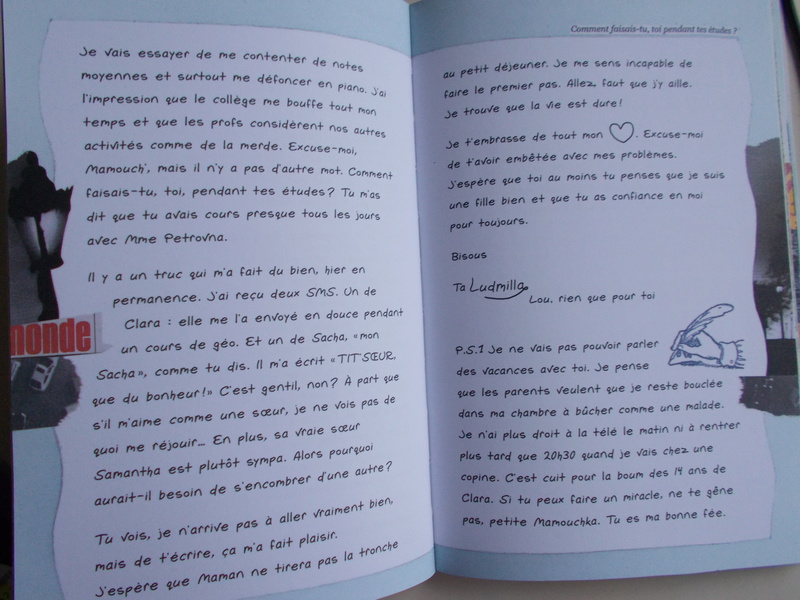 Je vais essayer de me contenter de notes
moyennes et surtout me défoncer en piano. J'ai
l'impression que le collège me bouffe tout mon
temps et que les profs considèrent nos autres
activités comme de la merde. Excuse-moi,
Mamouch', mais il n'y a pas d'autre mot. Comment
faisais-tu, toi, pendant tes études ? Tu m'as
dit que tu avais cours presque tous les jours
avec Mme Petrovna.
Il y a un truc qui m'a fait du bien, hier en
permanence. J'ai reçu deux SMS. Un de
Clara : elle me l'a envoyé en douce pendant
un cours de géo. Et un de Sacha, « mon
Sacha », comme tu dis. Il m'a écrit « TIT'SŒUR,
que du bonheur ! » C'est gentil, non ? À part que
s'il m'aime comme une sœur, je ne vois pas de
quoi me réjouir... En plus, sa vraie sœur
Samantha est plutôt sympa. Alors pourquoi
aurait-il besoin de s'encombrer d'une autre ?
Tu vois, je n'arrive pas à aller vraiment bien,
mais de t'écrire, ça m'a fait plaisir.
J'espère que Maman ne tirera pas la tronche
monde
Comment faisais-tu, toi pendant tes études ?
au petit déjeuner. Je me sens incapable de
faire le premier pas. Allez, faut que j'y aille.
Je trouve que la vie est dure !
Je t'embrasse de tout mon ♡. Excuse-moi
de t'avoir embêtée avec mes problèmes.
J'espère que toi au moins tu penses que je suis
une fille bien et que tu as confiance en moi
pour toujours.
Bisous
Ta Ludmilla
Lou, rien que pour toi
P.S.1 Je ne vais pas pouvoir parler
des vacances avec toi. Je pense
que les parents veulent que je reste bouclée
dans ma chambre à bûcher comme une malade.
Je n'ai plus droit à la télé le matin ni à rentrer
plus tard que 20h30 quand je vais chez une
copine. C'est cuit pour la boum des 14 ans de
Clara. Si tu peux faire un miracle, ne te gêne
pas, petite Mamouchka. Tu es ma bonne fée.